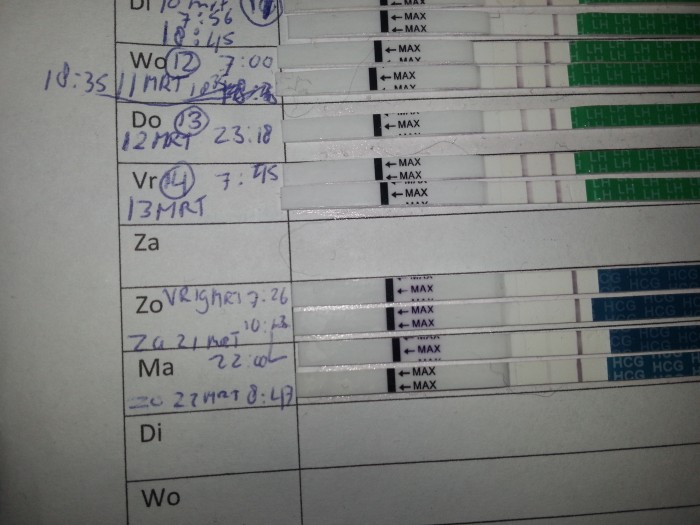 Di 10 mrt
7:56
18:45
← MAX
← MAX LH LH LH
Wo 12 7:00 ← MAX
18:35 11 MRT ← MAX LH LH LH LH
Do 13 ← MAX LH LH LH LH
12 MRT 23:18
Vr 14 7:45 ← MAX LH LH LH LH
13 MRT ← MAX LH LH LH LH
Za
← MAX HCG HCG
Zo VR 19 MRT 7:26 ← MAX HCG HCG
Za 21 MRT 10:13 ← MAX HCG HCG
Ma 22:00 ← MAX HCG HCG
Zo 22 MRT 8:47
Di
Wo